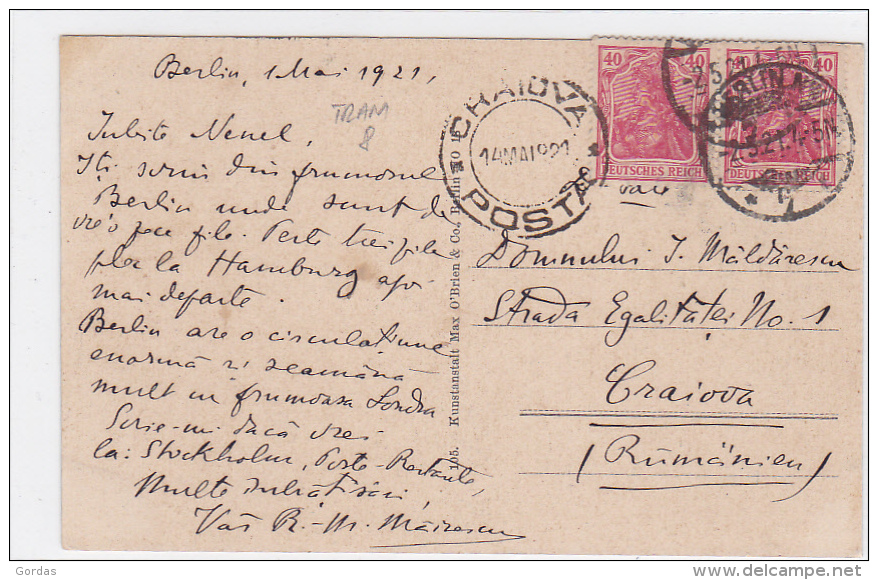 Berlin, 1 Mai 1921,
TRAM
8
Iubite Nenel,
Iți scriu din frumosul
Berlin unde sunt de
vre'o zece zile. Peste trei zile
plec la Hamburg apoi
mai departe.
Berlin are o circulațiune
enormă și seamănă
mult cu frumoasa Londra
Scrie-mi dacă vrei
la: Stockholm, Poste-Restante,
Multe îmbrățișări,
Văr
CRAIOVA
14 MAI 921
POSTA
40 40
DEUTSCHES REICH
40 40
DEUTSCHES REICH
BERLIN N
2.5.21.1-5N
Domnului I. Măldărescu
Strada Egalităței No. 1
Craiova
(Rumänien)
105. Kunstanstalt Max O'Brien & Co., Berlin NO 18
Gordas
delcampe.net